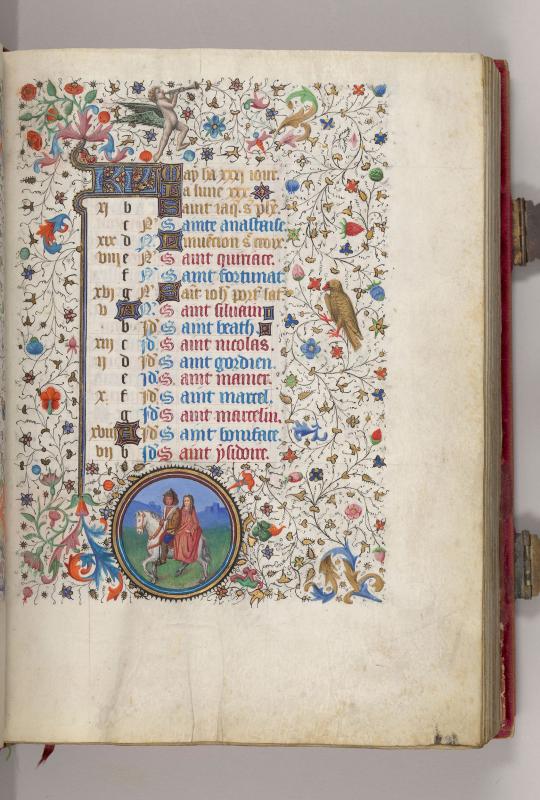 KL May ha xxxi iour.
La lune xxx.
xi b Saint iaq. s. ph'e
c N Sainte anastaise
xix d N Inuention s. croix
viii e N Saint quiriace.
f N Saint fortunat
xvi g N Sait ioh. port lat'
v A N Saint siluain
b Id Saint beath.
xiii c Id Saint nicolas.
ii d Id Saint gordien.
e Id Saint mamer.
x f Id Saint marcel.
g Id Saint marcelin.
xviii A Id Saint boniface.
vii b Id Saint ysidoire.